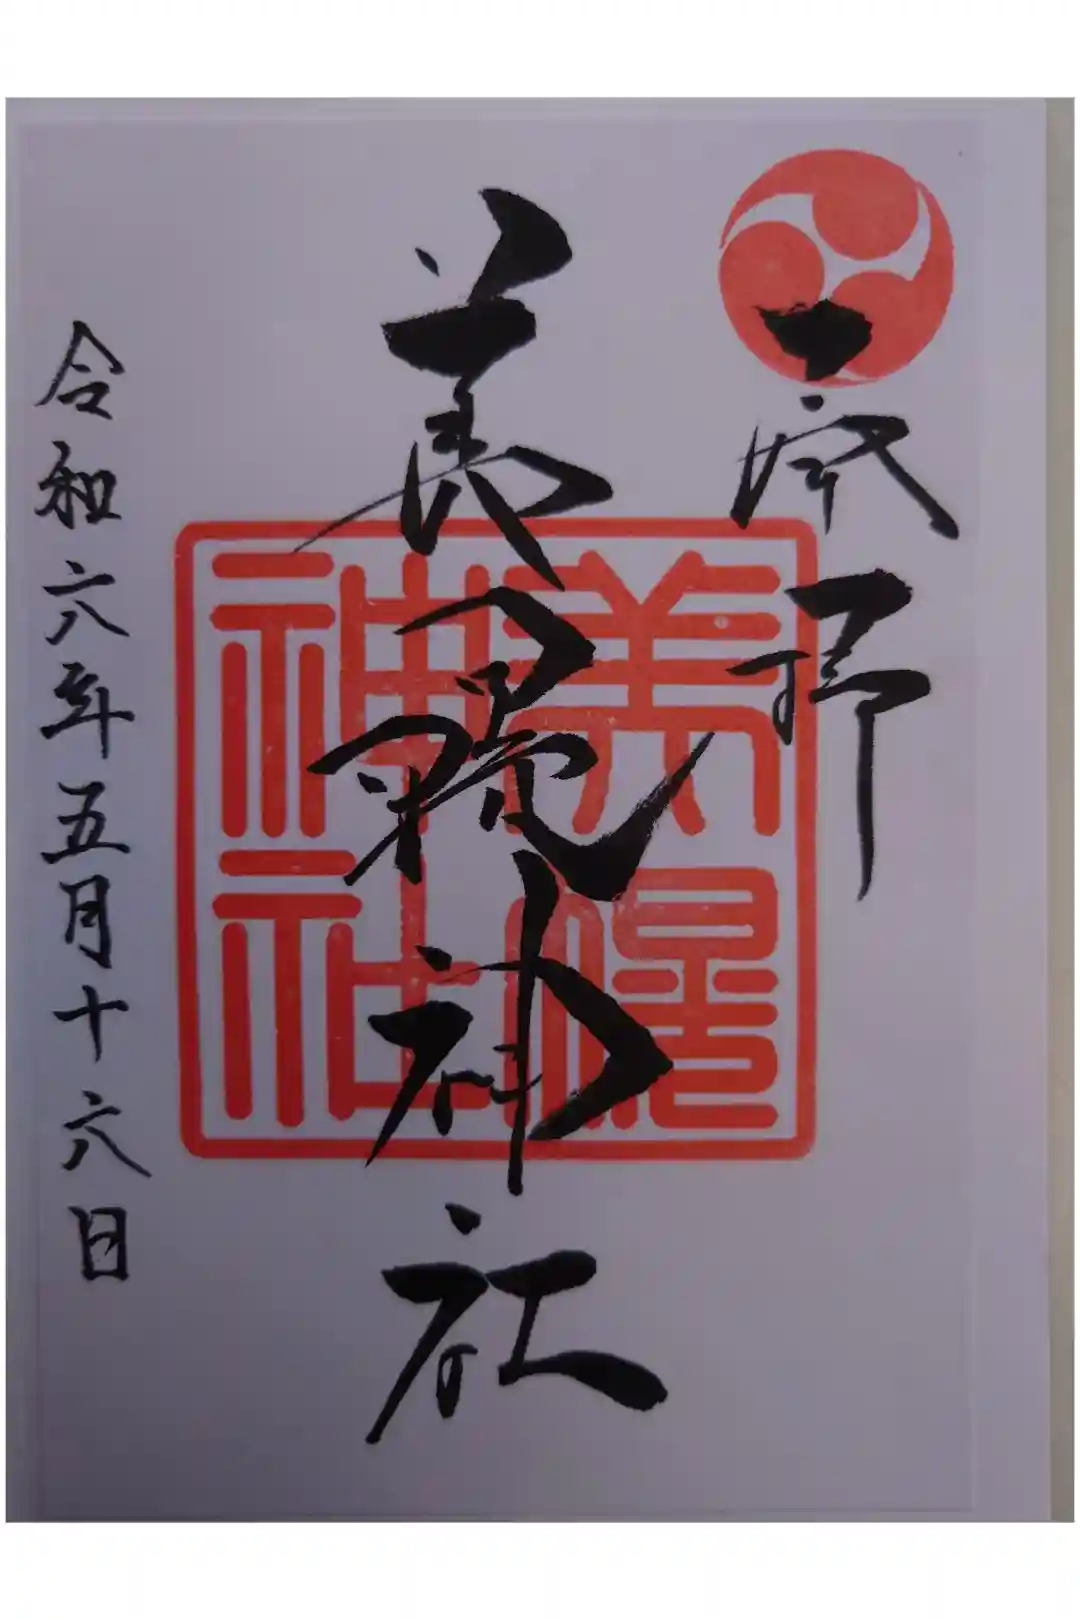 拝
美幌神社
美幌
神社
令和六年五月十六日